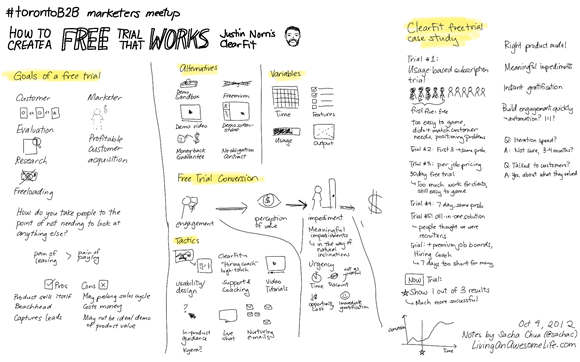 #torontoB2B marketers meetup
HOW TO CREATE A FREE TRIAL THAT WORKS
Justin Norri's
ClearFit
Goals of a free trial
Customer
Evaluation
Research
Freeloading
Marketer
Profitable
Customer
acquisition
How do you take people to the
point of not needing to look at
anything else?
pain of leaving > pain of paying
Pros
Product sells itself
Beachhead
Captures leads
Cons
May prolong sales cycle
Costs money
May not be ideal demo
of product value
Alternatives
Demo
Sandbox
Freemium
Demo video
Moneyback
Guarantee
No obligation
contract
Variables
Time
Features
Usage
Output
Free Trial Conversion
engagement
perception
of value
impediment
$
Meaningful
impediments
in the way of
natural inclinations
Urgency
Time
Discount
opportunity
cost
Immediate
gratification
Tactics
Usability/
design?
ClearFit →
"Hiring coach"
high-touch
Support &
Coaching
Video
Tutorials
In-product
guidance
Live
chat
Nurturing
emails?
ClearFit free trial
case study
Trial #1:
Usage-based subscription
trial
first five free
too easy to game,
didn't match customer
needs, positioning problems
Trial #2: First 3 → same prob
Trial #3: per job pricing
30 day free trial
↳ Too much work for clients,
still easy to game
Trial #4: 7 day, same prob
Trial #5: all-in-one solution
people thought we were
recruiters
Trial: + premium job boards,
Hiring Coach
↳ 7 days too short for many
Now Trial:
Show 1 out of 3 results
↳ Much more successful
Right product model
Meaningful impediments
Instant gratification
Build engagement quickly
automation? 1:1?
Q: Iteration speed?
A: Not sure, 3-4 months?
Q: Talked to customers?
A: Yes, about what they valued
Oct 4, 2012
Notes by Sacha Chua (@sachac)
LivingAnAwesomeLife.com